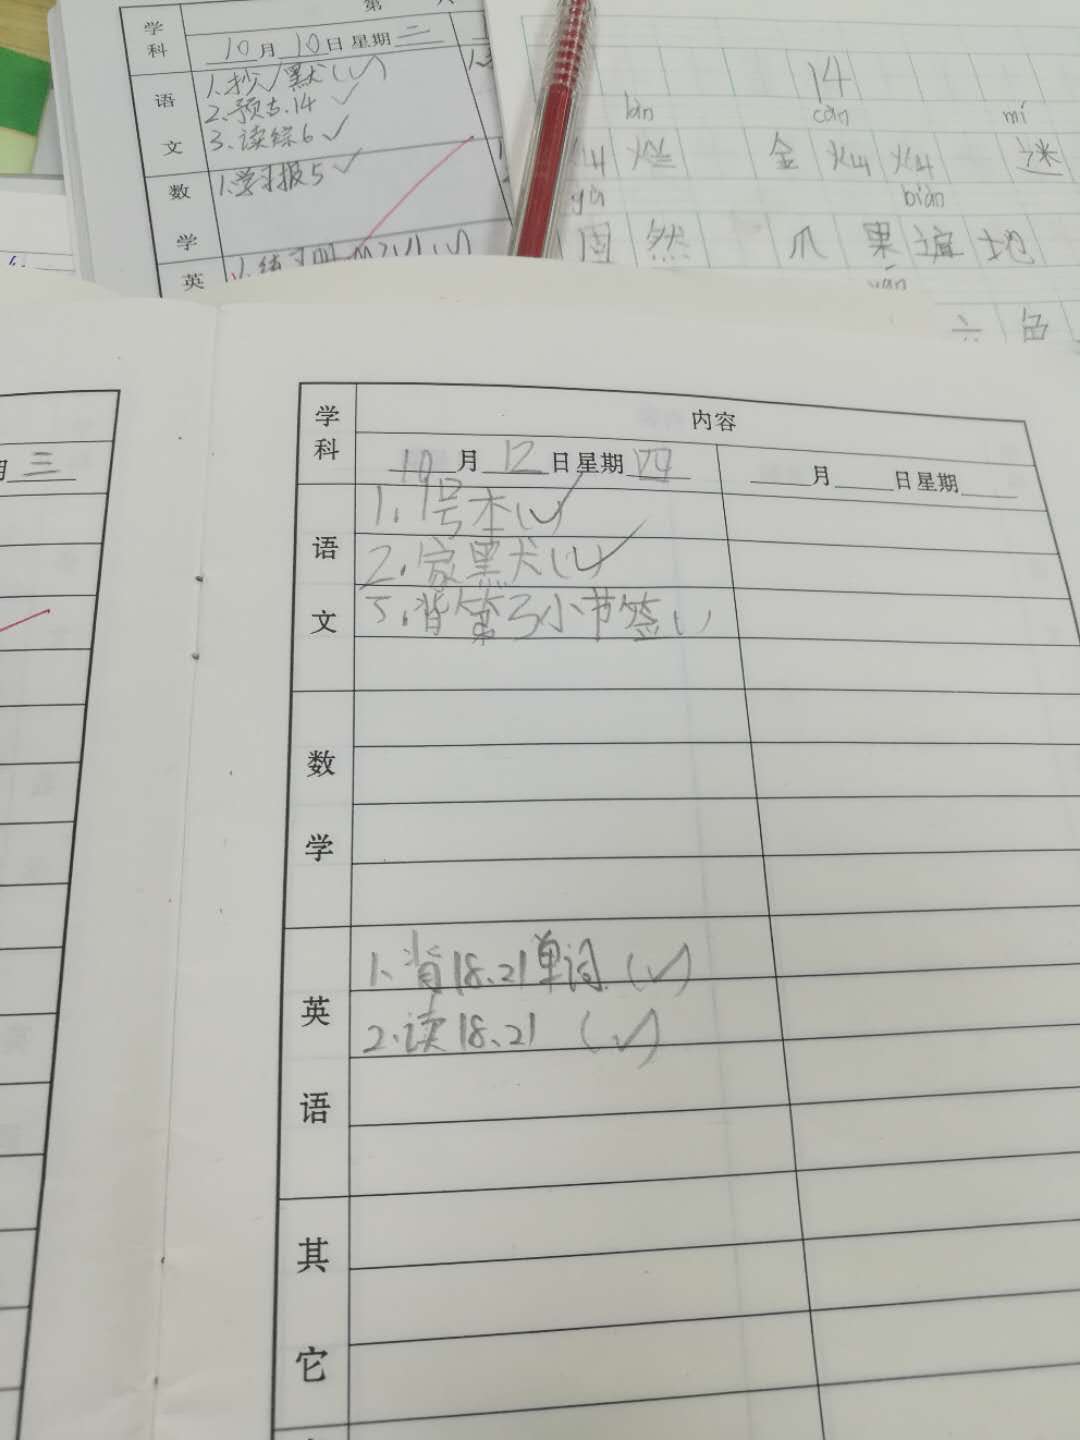 学科
第 六
10月10日星期二
语文
1.抄、默(√)
2.预专.14 √
3.读综6 √
数学
1.学习报5 √
英
14
làn
càn
mí
灿 烂 金 灿 灿 谜
yù
biàn
固 然 爪 果 遍 地
色
三
学科
内容
10月12日星期四
月 日星期
语文
1.1号本(√)
2.家默(√)
3.背第3小节签( )
数学
英语
1.背18、21单词(√)
2.读18、21 (√)
其它